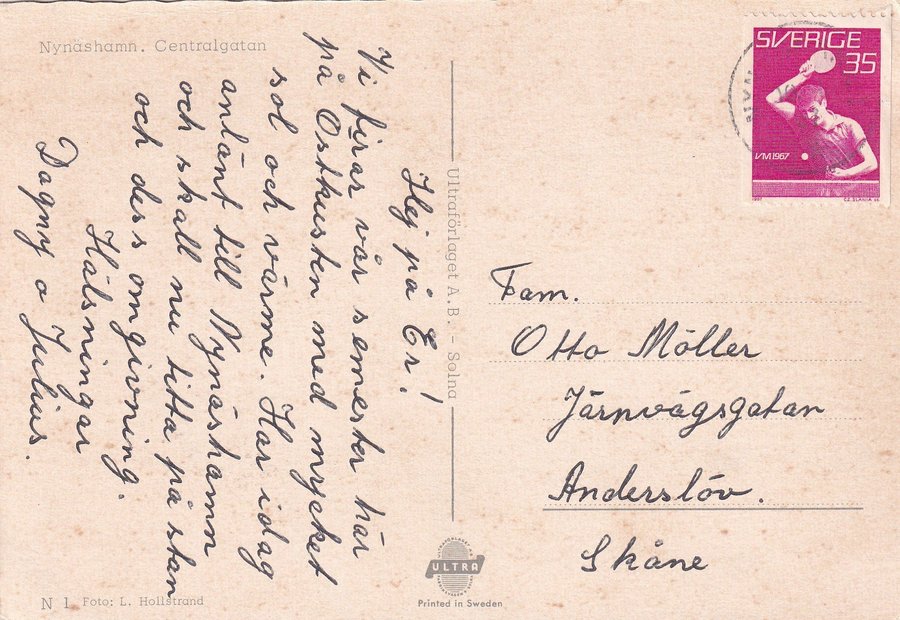 Nynäshamn. Centralgatan
Hej på Er!
Vi firar vår semester här
på Ostkusten med mycket
sol och värme. Har idag
anlänt till Nynäshamn
och skall nu titta på stan
och dess omgivning.
Hälsningar
Dagny o Julius.
Ultraförlaget A.B. - Solna
SVERIGE
35
VM 1967
1967
CZ. SLANIA
Fam.
Otto Möller
Järnvägsgatan
Anderslöv.
Skåne
ULTRA
Printed in Sweden
N 1 Foto: L. Hollstrand